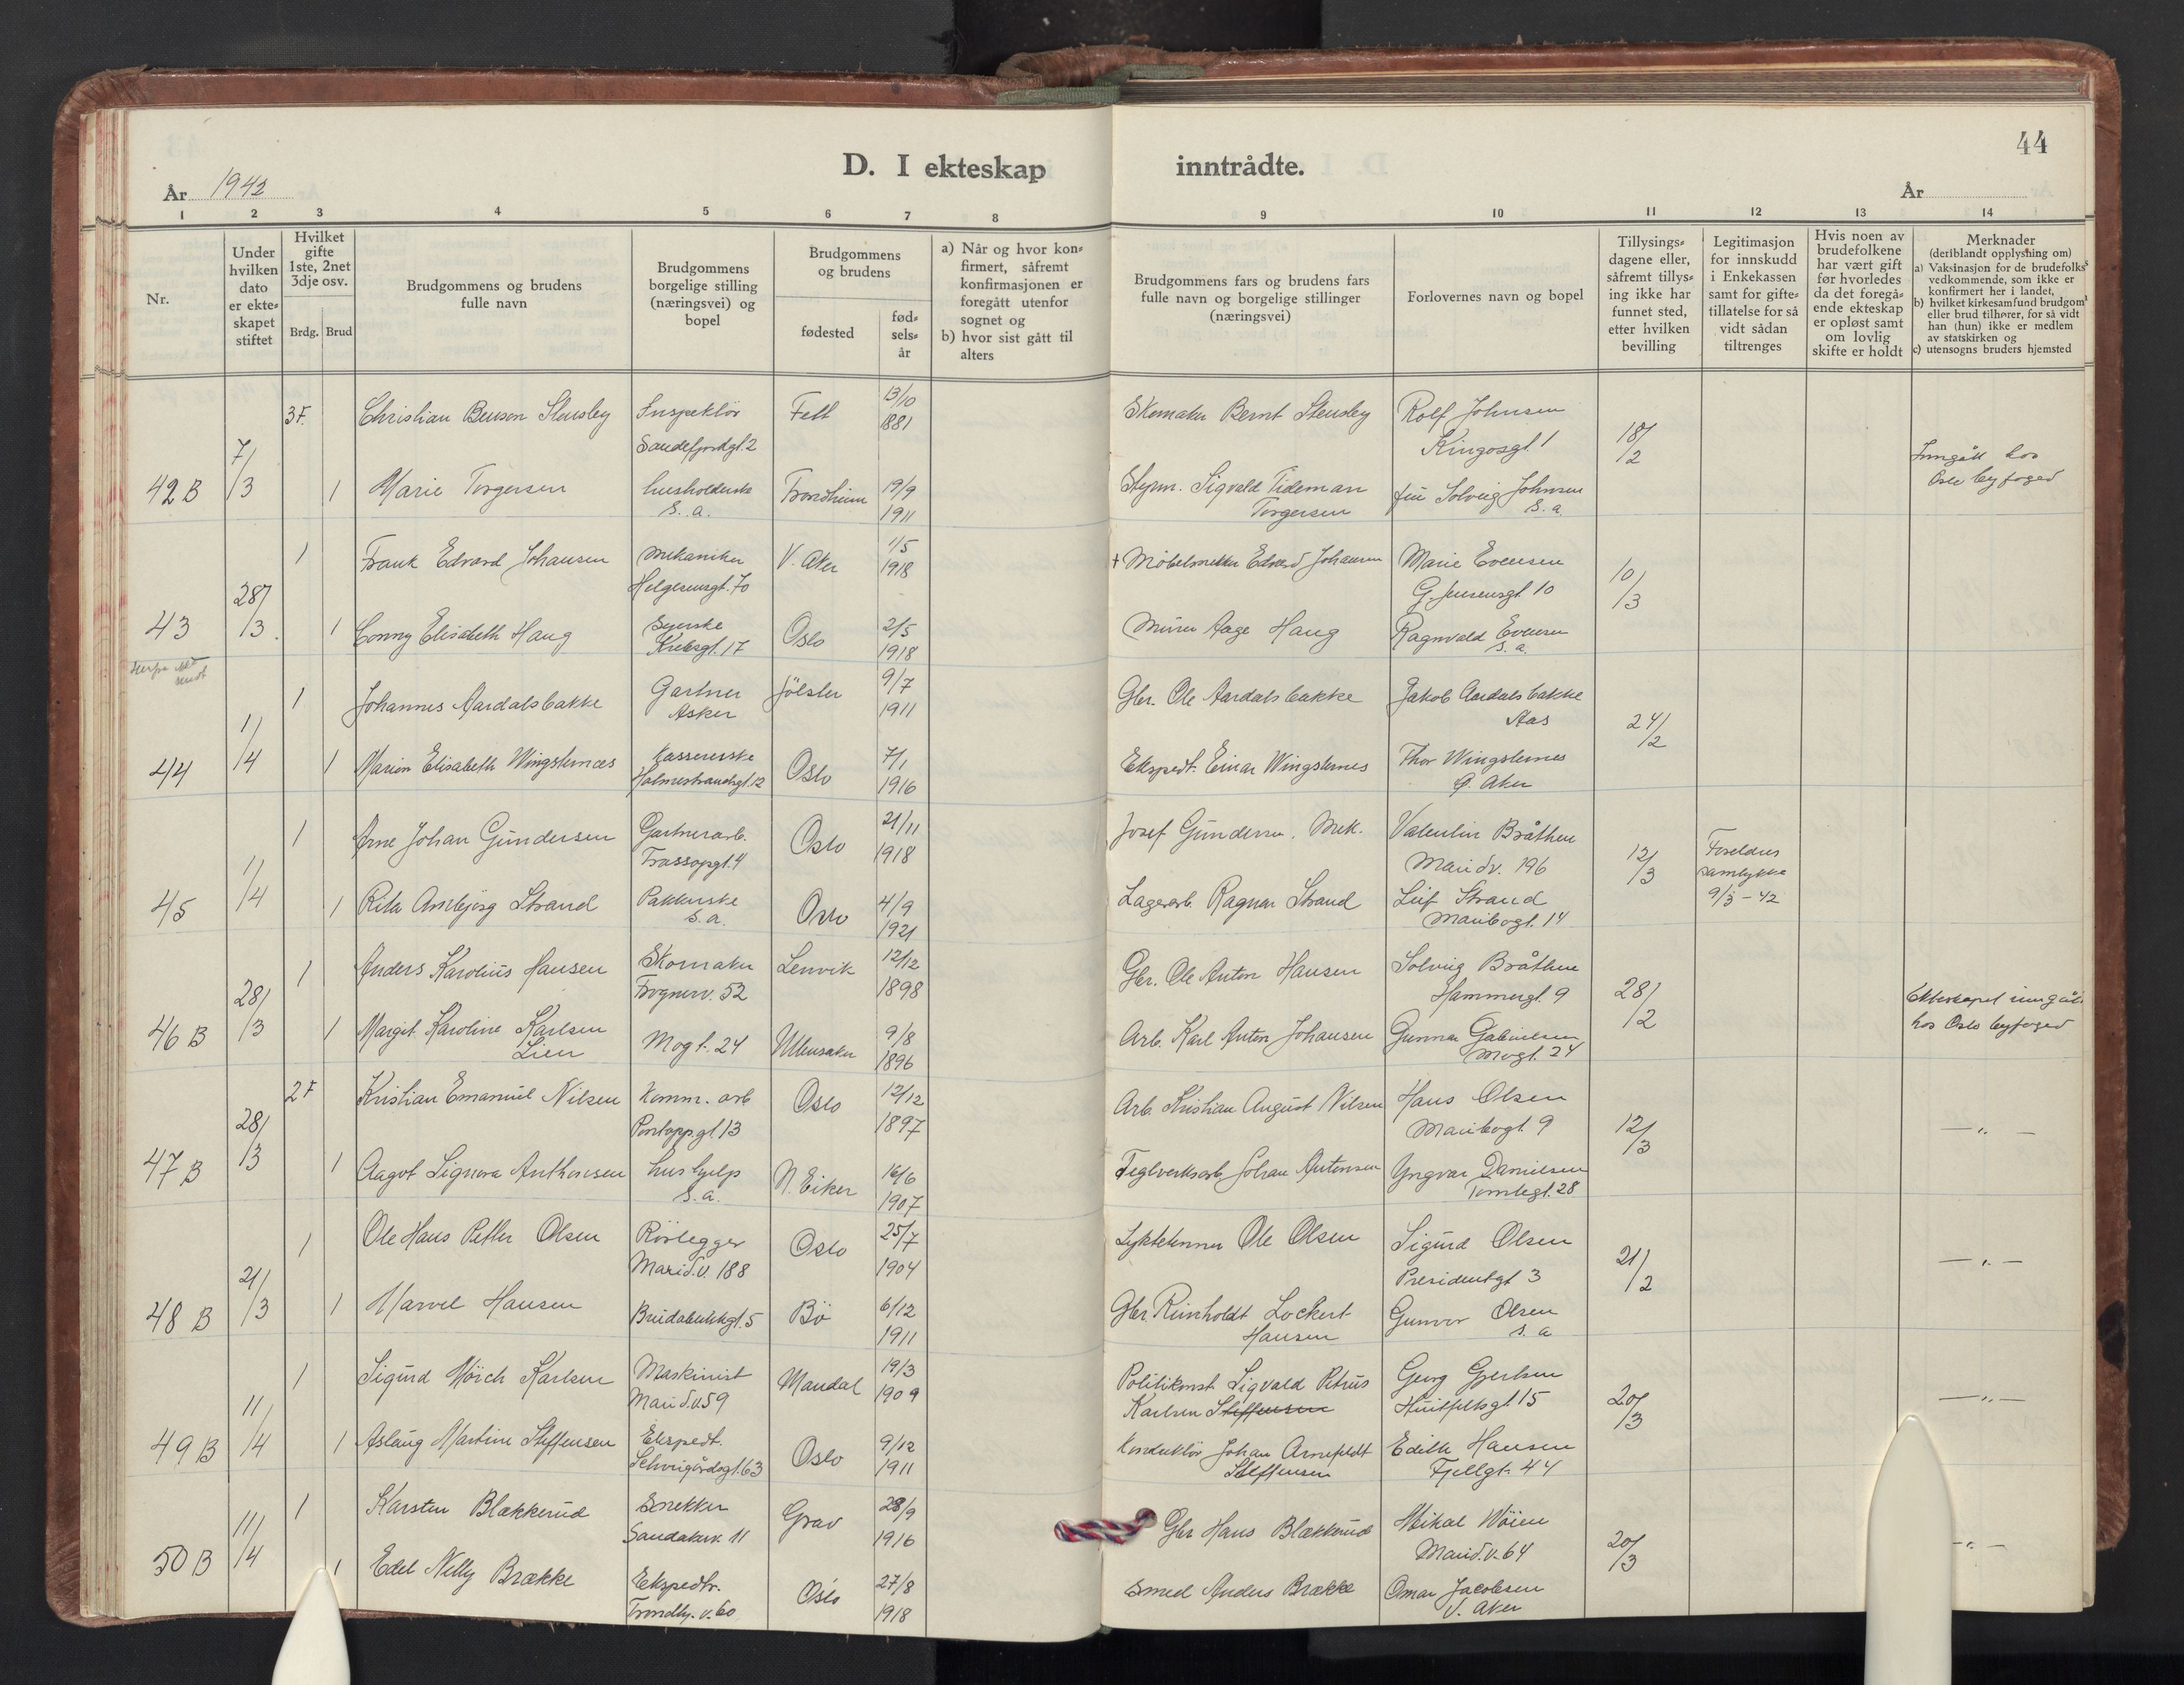 44
D. I ekteskap inntrådte.
År 1942
År
1 2 3 4 5 6 7 8 9 10 11 12 13 14
Nr.
Under hvilken dato er ekte= skapet stiftet
Hvilket gifte 1ste, 2net 3dje osv.
Brdg. Brud
Brudgommens og brudens fulle navn
Brudgommens borgelige stilling (næringsvei) og bopel
Brudgommens og brudens
fødested
fød= sels= år
a) Når og hvor kon= firmert, såfremt konfirmasjonen er foregått utenfor sognet og
b) hvor sist gått til alters
Brudgommens fars og brudens fars fulle navn og borgelige stillinger (næringsvei)
Forlovernes navn og bopel
Tillysings= dagene eller, såfremt tillys= ing ikke har funnet sted, etter hvilken bevilling
Legitimasjon for innskudd i Enkekassen samt for gifte= tillatelse for så vidt sådan tiltrenges
Hvis noen av brudefolkene har vært gift før hvorledes da det foregå= ende ekteskap er opløst samt om lovlig skifte er holdt
Merknader
(deriblandt opplysning om)
a) Vaksinasjon for de brudefolks vedkommende, som ikke er konfirmert her i landet,
b) hvilket kirkesamfund brudgom eller brud tilhører, for så vidt han (hun) ikke er medlem av statskirken og
c) utensogns bruders hjemsted
3F. Christian Benson Stensby Inspektör Fett 13/10 Skomaker Bernt Stensby Rolf Johnsen
Sandefjordgt. 2 1881 Kingosgt. 1 18/2
42 B 7/3 1 Marie Torgersen husholderske Trondheim 19/9 Styrm. Sigvald Tideman fru Solveig Johnsen Inngått hos
s. a. 1911 Torgersen s. a. Oslo byfoged
1 Frank Edvard Johansen Mekaniker V. Aker 1/5 + Möbelsnekker Edvard Johansen Marie Evensen
Helgesensgt. 70 1918 G. Jensensgt. 10 10/3
43 28/3 1 Conny Elisabeth Haug Syerske Oslo 2/5 Murer Aage Haug Ragnvald Evensen
Krebsgt. 17 1918 s. a.
1 Johannes Aardalsbakke Gartner Jölster 9/7 Gbr. Ole Aardalsbakke Jakob Aardalsbakke
Asker 1911 Aas 24/2
44 1/4 1 Marion Elisabeth Wingsternes Kassererske Oslo 7/1 Ekspedt. Einar Wingsternes Thor Wingsternes
Holmestrandsgt. 12 1916 Ø. Aker
1 Arne Johan Gundersen Gartnerarb. Oslo 21/11 Josef Gundersen. Mek. Valentin Bråthen Foreldres
Trassopgt. 4 1918 Marid.v. 196 12/3 samtykke
45 1/4 1 Rita Arnbjørg Strand Pakkerske Oslo 4/9 Lagerarb. Ragnar Strand Leif Strand 9/3 - 42
s. a. 1921 Maribogt. 14
1 Anders Karolius Hansen Skomaker Lenvik 12/12 Gbr. Ole Anton Hansen Solveig Bråthen
Frognerv. 52 1898 Hammergt. 9 28/2 Ekteskapet inngått
46 B 28/3 1 Margit Karoline Karlsen Mogt. 24 Ullensaker 9/8 Arb. Karl Anton Johansen Gunnar Gabrielsen hos Oslo byfoged
Lien 1896 Mogt. 24
2 F Kristian Emanuel Nilsen Komm. arb. Oslo 12/12 Arb. Kristian August Nilsen Hans Olsen
Pontoppgt. 13 1897 Maribogt. 9 12/3 — " —
47 B 28/3 1 Aagot Signora Anthonsen hushjelp N. Eiker 16/6 Teglverksarb. Johan Antonsen Yngvar Danielsen
s. a. 1907 Tomtegt. 28
1 Ole Hans Petter Olsen Rörlegger Oslo 25/7 Lyktetenner Ole Olsen Sigurd Olsen
Marid.v. 188 1904 Presidentgt 3 21/2 — " —
48 B 21/3 1 Marvel Hansen 5 Bö 6/12 Gbr. Reinholdt Lockert Gunvor Olsen
1911 Hansen s. a
1 Sigurd Mörch Karlsen Maskinist Mandal 19/3 Politikonst. Sigvald Petrus Georg Gjertsen
Marid.v. 59 1909 Karlsen Steffensen Huitfeltsgt 15 20/3 — " —
49 B 11/4 1 Aslaug Martine Steffensen Ekspedt. Oslo 9/12 Konduktör Johan Arnefeldt Edith Hansen
Schweigårdsgt. 63 1911 Steffensen Fjellgt. 44
1 Karsten Blækkerud Snekker Grav 28/9 Gbr Hans Blækkerud Mikal Wöien
Sandakerv. 11 1916 Marid.v. 64 20/3 — " —
50 B 11/4 1 Edel Nelly Brække Ekspedtr. Oslo 27/8 Smed Anders Brække Omar Jacobsen
Trondhj. v. 60 1918 V. Aker